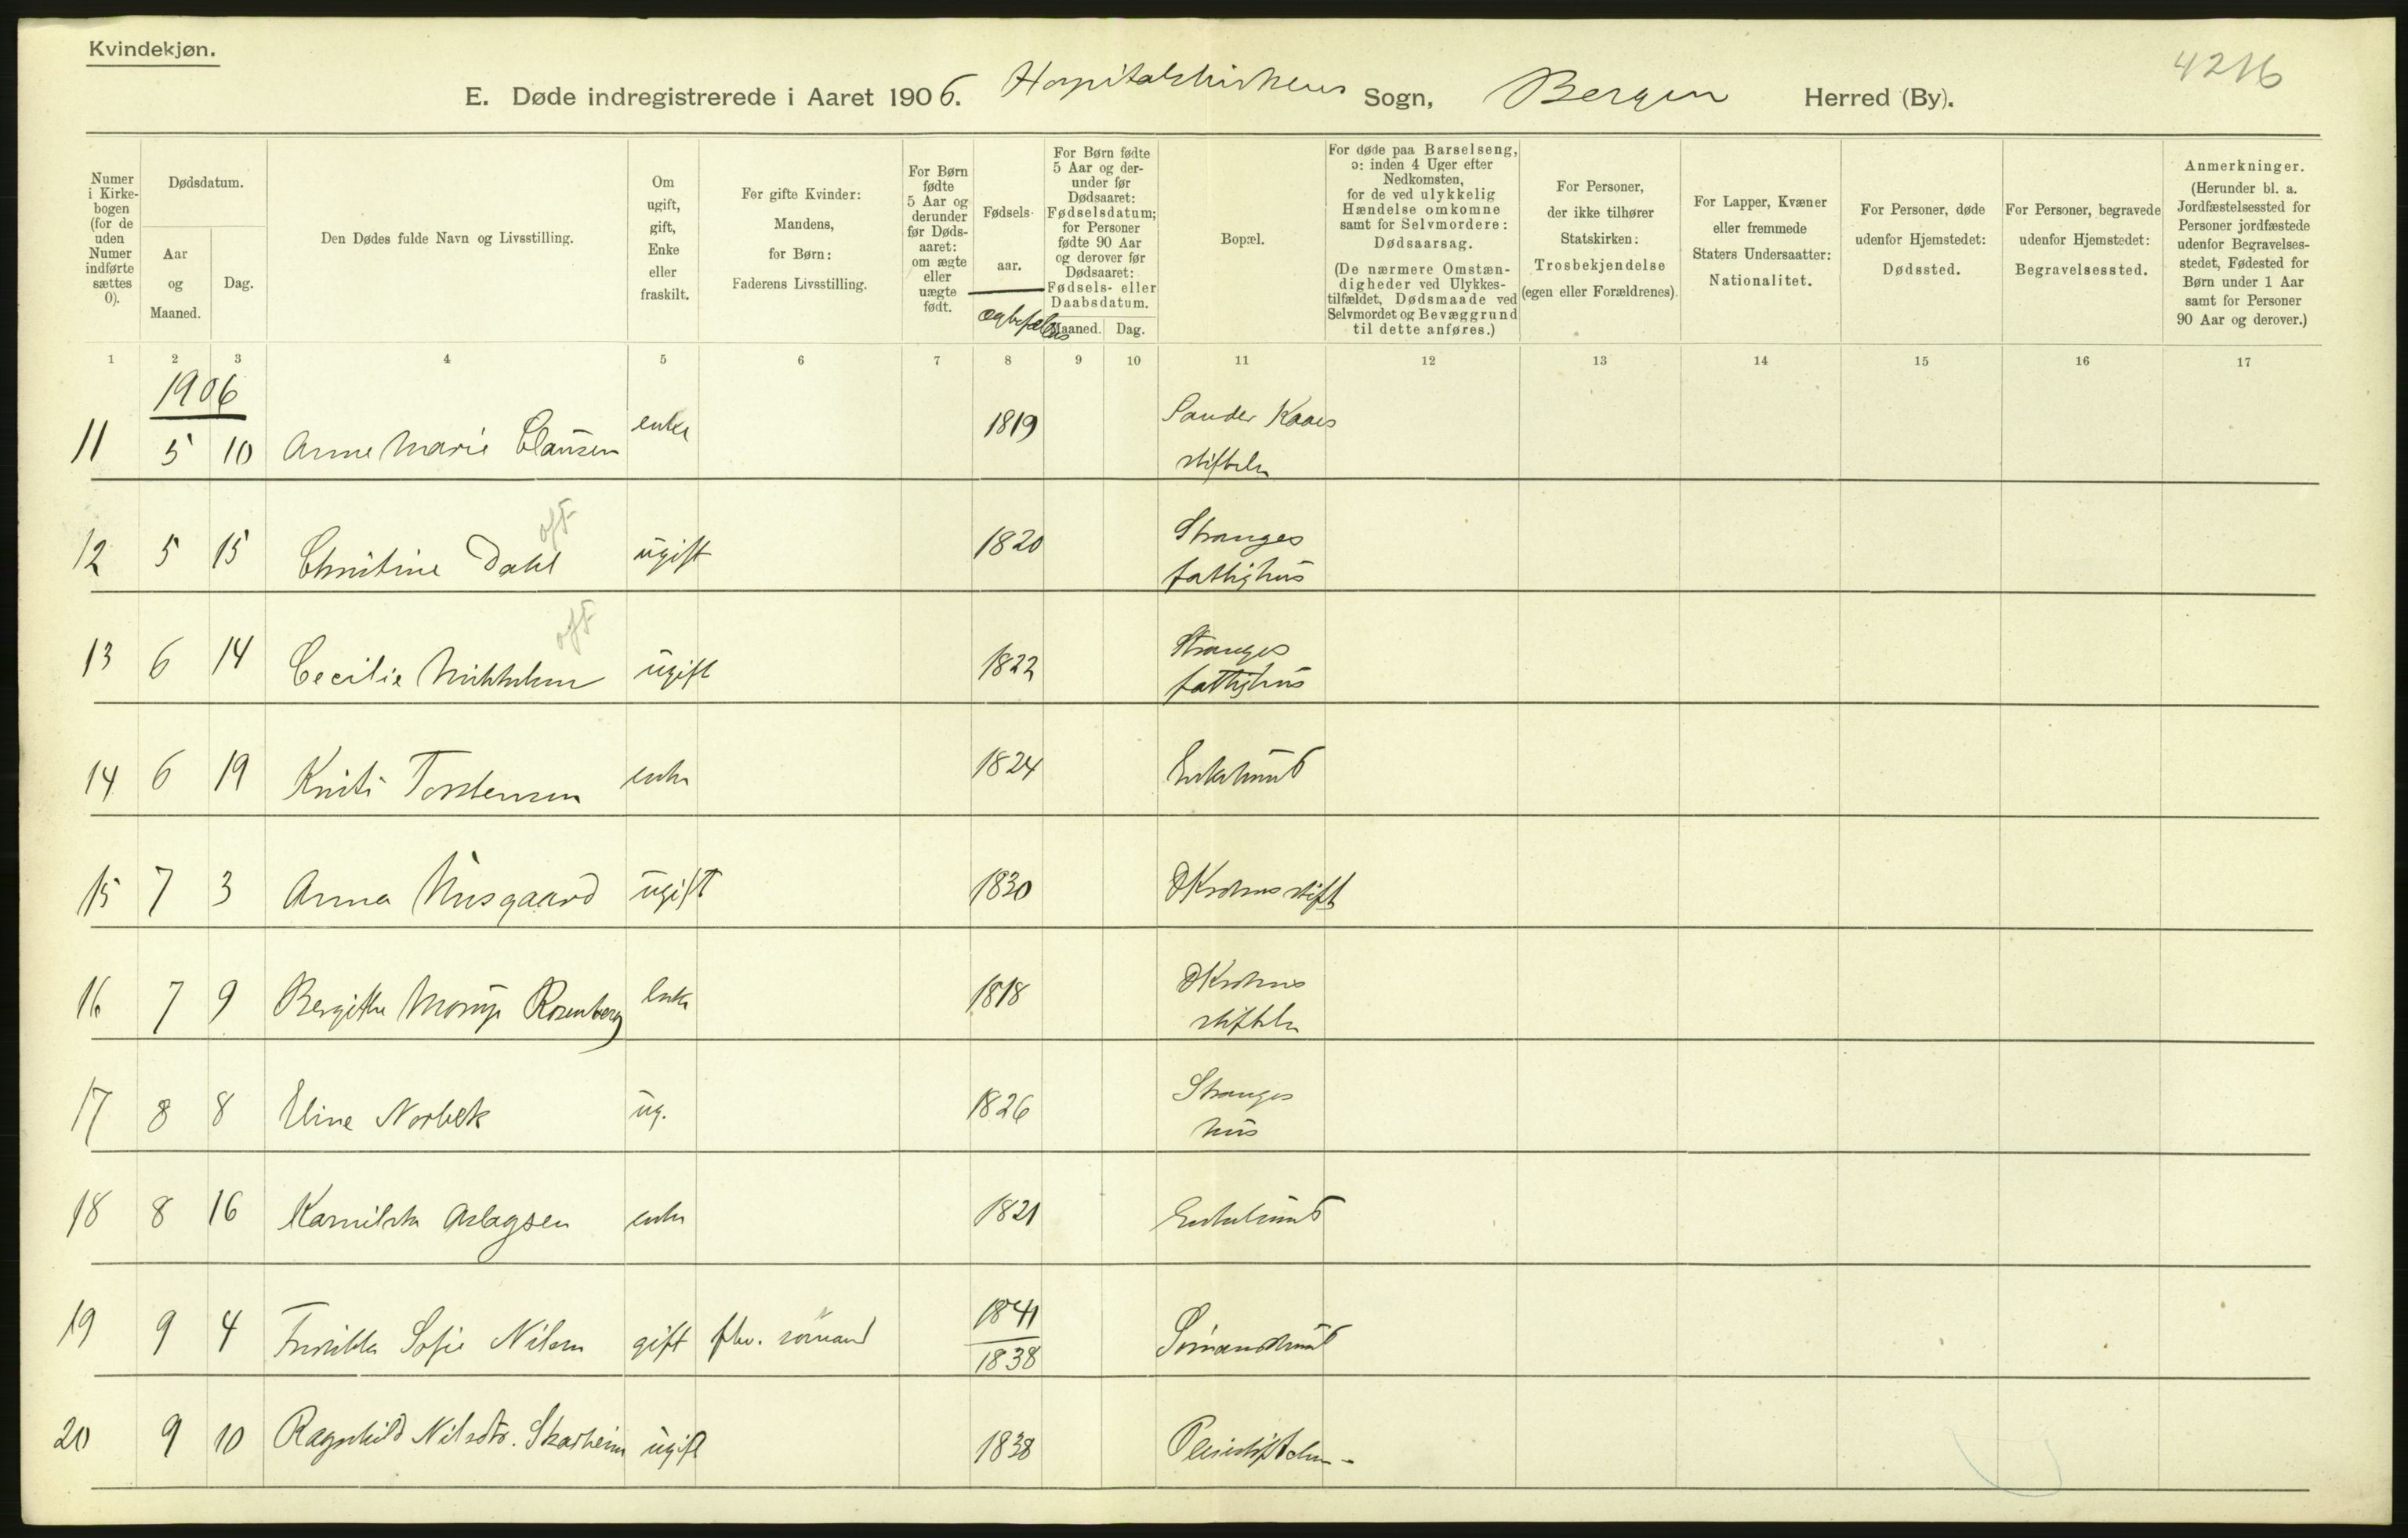 Kvindekjøn.
4216
E. Døde indregistrerede i Aaret 1906. Hospitalskirkens Sogn, Bergen Herred (By).
Numer i Kirkebogen (for de uden Numer indførte sættes 0).
Dødsdatum.
Aar og Maaned.
Dag.
Den Dødes fulde Navn og Livsstilling.
Om ugift, gift, Enke eller fraskilt.
For gifte Kvinder: Mandens, for Børn: Faderens Livsstilling.
For Børn fødte 5 Aar og derunder før Dødsaaret: om ægte eller uægte født.
Fødselsaar.
For Børn fødte 5 Aar og derunder før Dødsaaret: Fødselsdatum; for Personer fødte 90 Aar og derover før Dødsaaret: Fødsels- eller Daabsdatum.
Maaned. Dag.
Bopæl.
For døde paa Barselseng, ɔ: inden 4 Uger efter Nedkomsten, for de ved ulykkelig Hændelse omkomne samt for Selvmordere: Dødsaarsag. (De nærmere Omstændigheder ved Ulykkestilfældet, Dødsmaade ved Selvmordet og Bevæggrund til dette anføres.)
For Personer, der ikke tilhører Statskirken: Trosbekjendelse (egen eller Forældrenes).
For Lapper, Kvæner eller fremmede Staters Undersaatter: Nationalitet.
For Personer, døde udenfor Hjemstedet: Dødssted.
For Personer, begravede udenfor Hjemstedet: Begravelsessted.
Anmerkninger. (Herunder bl. a. Jordfæstelsessted for Personer jordfæstede udenfor Begravelsesstedet, Fødested for Børn under 1 Aar samt for Personer 90 Aar og derover.)
1 2 3 4 5 6 7 8 9 10 11 12 13 14 15 16 17
1906
11 5 10 Anne Marie Clausen enke 1819 Sander Kaaes
stiftelse
off
12 5 15 Christine Dahl ugift 1820 Stranges
fattighus
off
13 6 14 Cecilie Mikkelsen ugift 1822 Stranges
fattighus
14 6 19 Torstensen enke 1824
15 7 3 Anna Husgaard ugift 1830 D Krohns stift
16 7 9 Bergitte Rosenberg enke 1818 D Krohns
stiftelse
17 8 8 Eline Norbek ug. 1826 Stranges
hus
18 8 16 Aslagsen enke 1821
19 9 4 Fredrikke Sofie Nilsen gift fhv. sømand 1841
1838
20 9 10 Ragnhild Nilsdtr. Skarheim ugift 1838